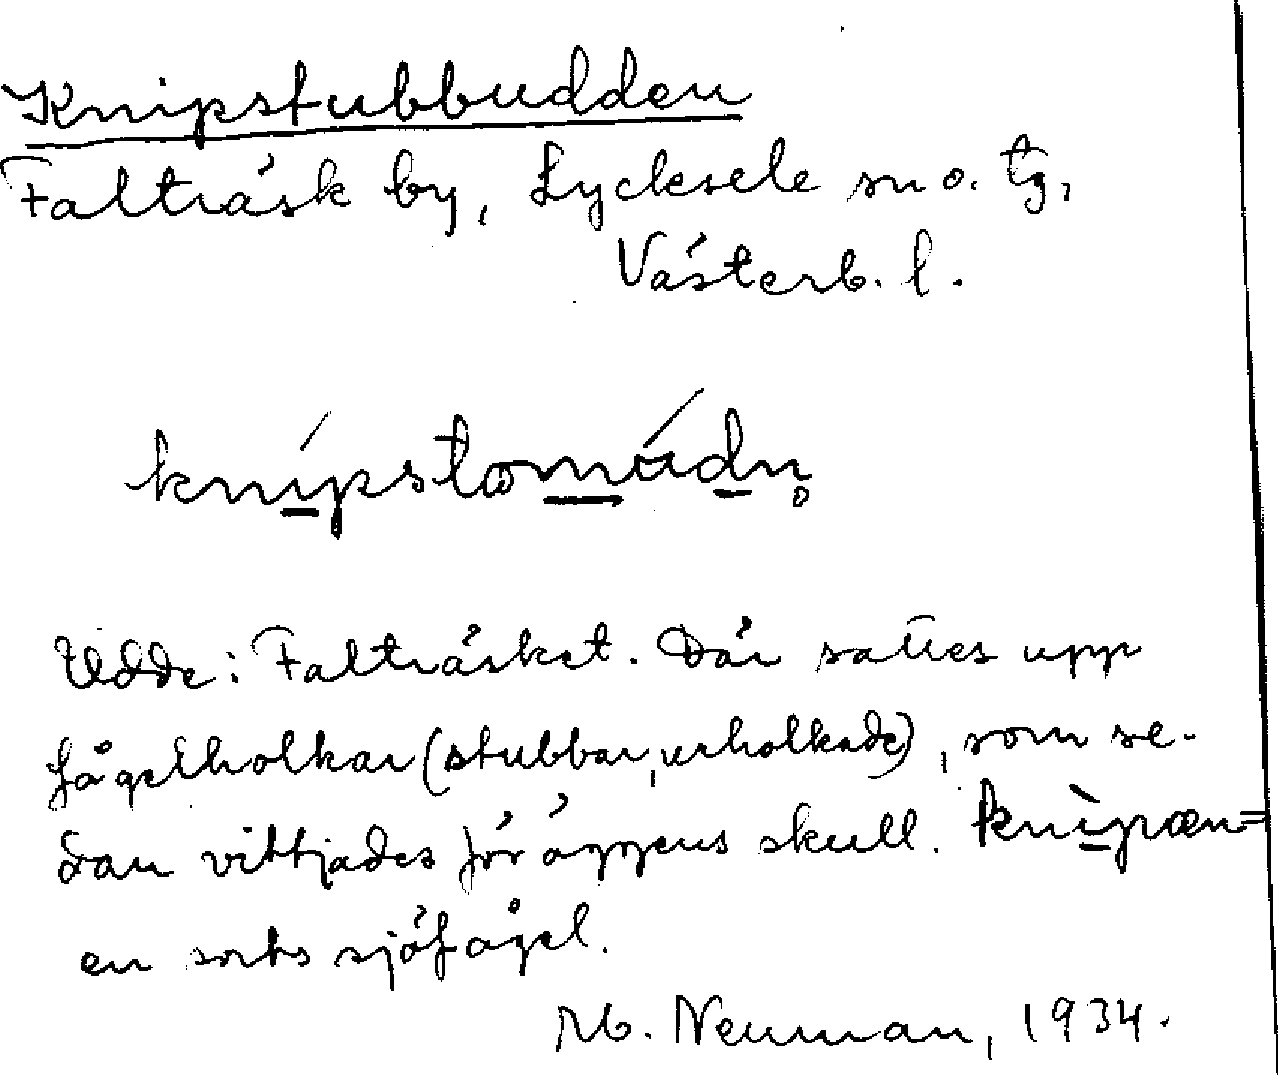 Knipstubbudden
Falträsk by, Lycksele sn o. tg,
Västerb. l.
Udde: Falträsket. Där sattes upp
fågelholkar (stubbar, urholkade), som se-
dan vittjades för äggens skull. knìpæn=
en sorts sjöfågel.
M. Neuman, 1934.